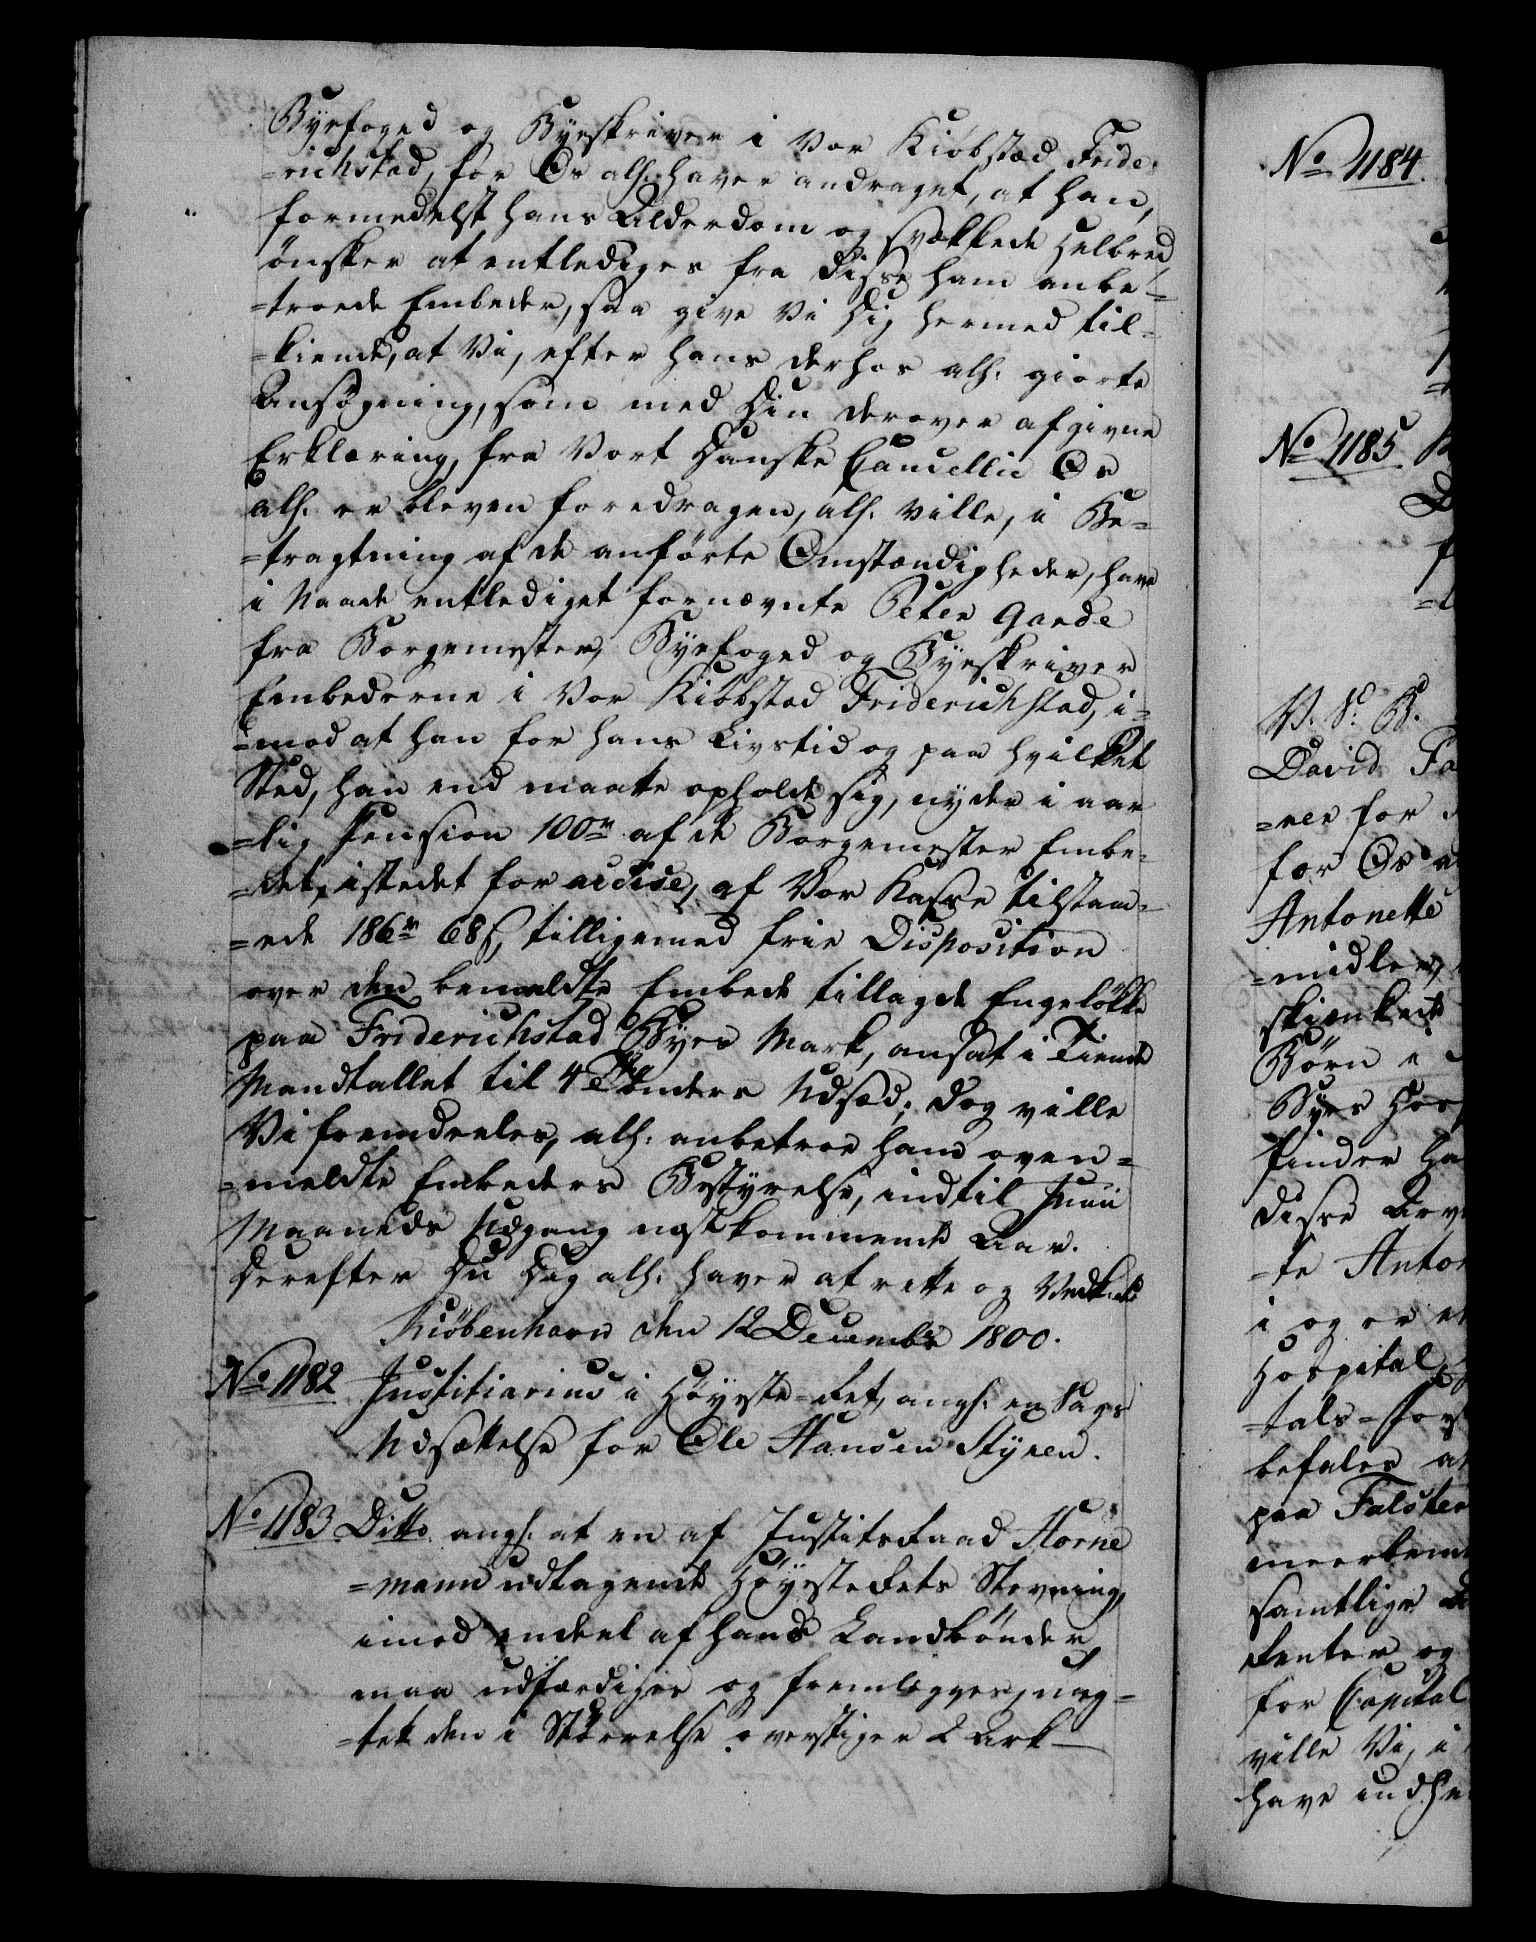 Byefoged og Byeskriver i Vor Kiøbstæd Fride-
=richstad, for Os alh: haver andraget, at han,
formedelst hans Alderdom og svækkede Helbred
ønsker at entlediges fra disse ham anbe-
=troede Embeder, saa give Vi Dig hermed til-
=kiende, at Vi, efter hans derhos alh: giorte
Ansøgning, som med Din derover afgivne
Erklæring, fra Vort Danske Cancellie Os
alh: er bleven foredragen, alh: ville, i Be-
=tragtning af de anførte Omstændigheder, have
i Naade entlediget fornævnte Peter Garde
fra Borgemester, Byefoged og Byeskriver
Embederne i Vor Kiøbstæd Friderichstad, i-
=mod at han for hans Livstid og paa hvilket
Sted, han end maatte opholde sig, nyder i aar
=lig Pension 100rd af de Borgemester Embe-
=det, istedet for accise, af Vor Kasse tilstaa-
=ede 186rd 68ß, tilligemed frie Disposition
over den bemeldte Embede tillagde Engeløkke
paa Friderichstad Byes Mark, ansat i Tiende
Mandtallet til 4 Tønders Udsæd; dog ville
Vi fremdeeles, alh: anbetroe ham oven-
=meldte Embeders Bestyrelse, indtil Junii
Maaneds Udgang næstkommende Aar.
Derefter Du Dig alh: haver at rette og Vedkommende
Kiøbenhavn den 12 Decembr 1800.
No 1182 Justitiarius i Høyeste-Ret, angh: en Sags
Udsættelse for Ole Hansen Styren.
No 1183 Ditto angh: at en af Justitsraad Horne
=mann udtagende Høyesterets Stevning,
imod endeel af hans Landbønder,
maa udfærdiges og fremlegges, uag-
=tet den i Størrelse overstiger 2 Ark
No 1184.
No 1185
V. S. B.
David Fa
=ner for
for Os a
Antonette
=midler,
skienkede
Børn i
Byes Hos
finder ha
disse Arv
=te Anton
i og er et
Hospital,
=tals-for
befales at
paa Falster
meerbem
samtlige
Renter og
for Capital
ville Vi, i
have indhe